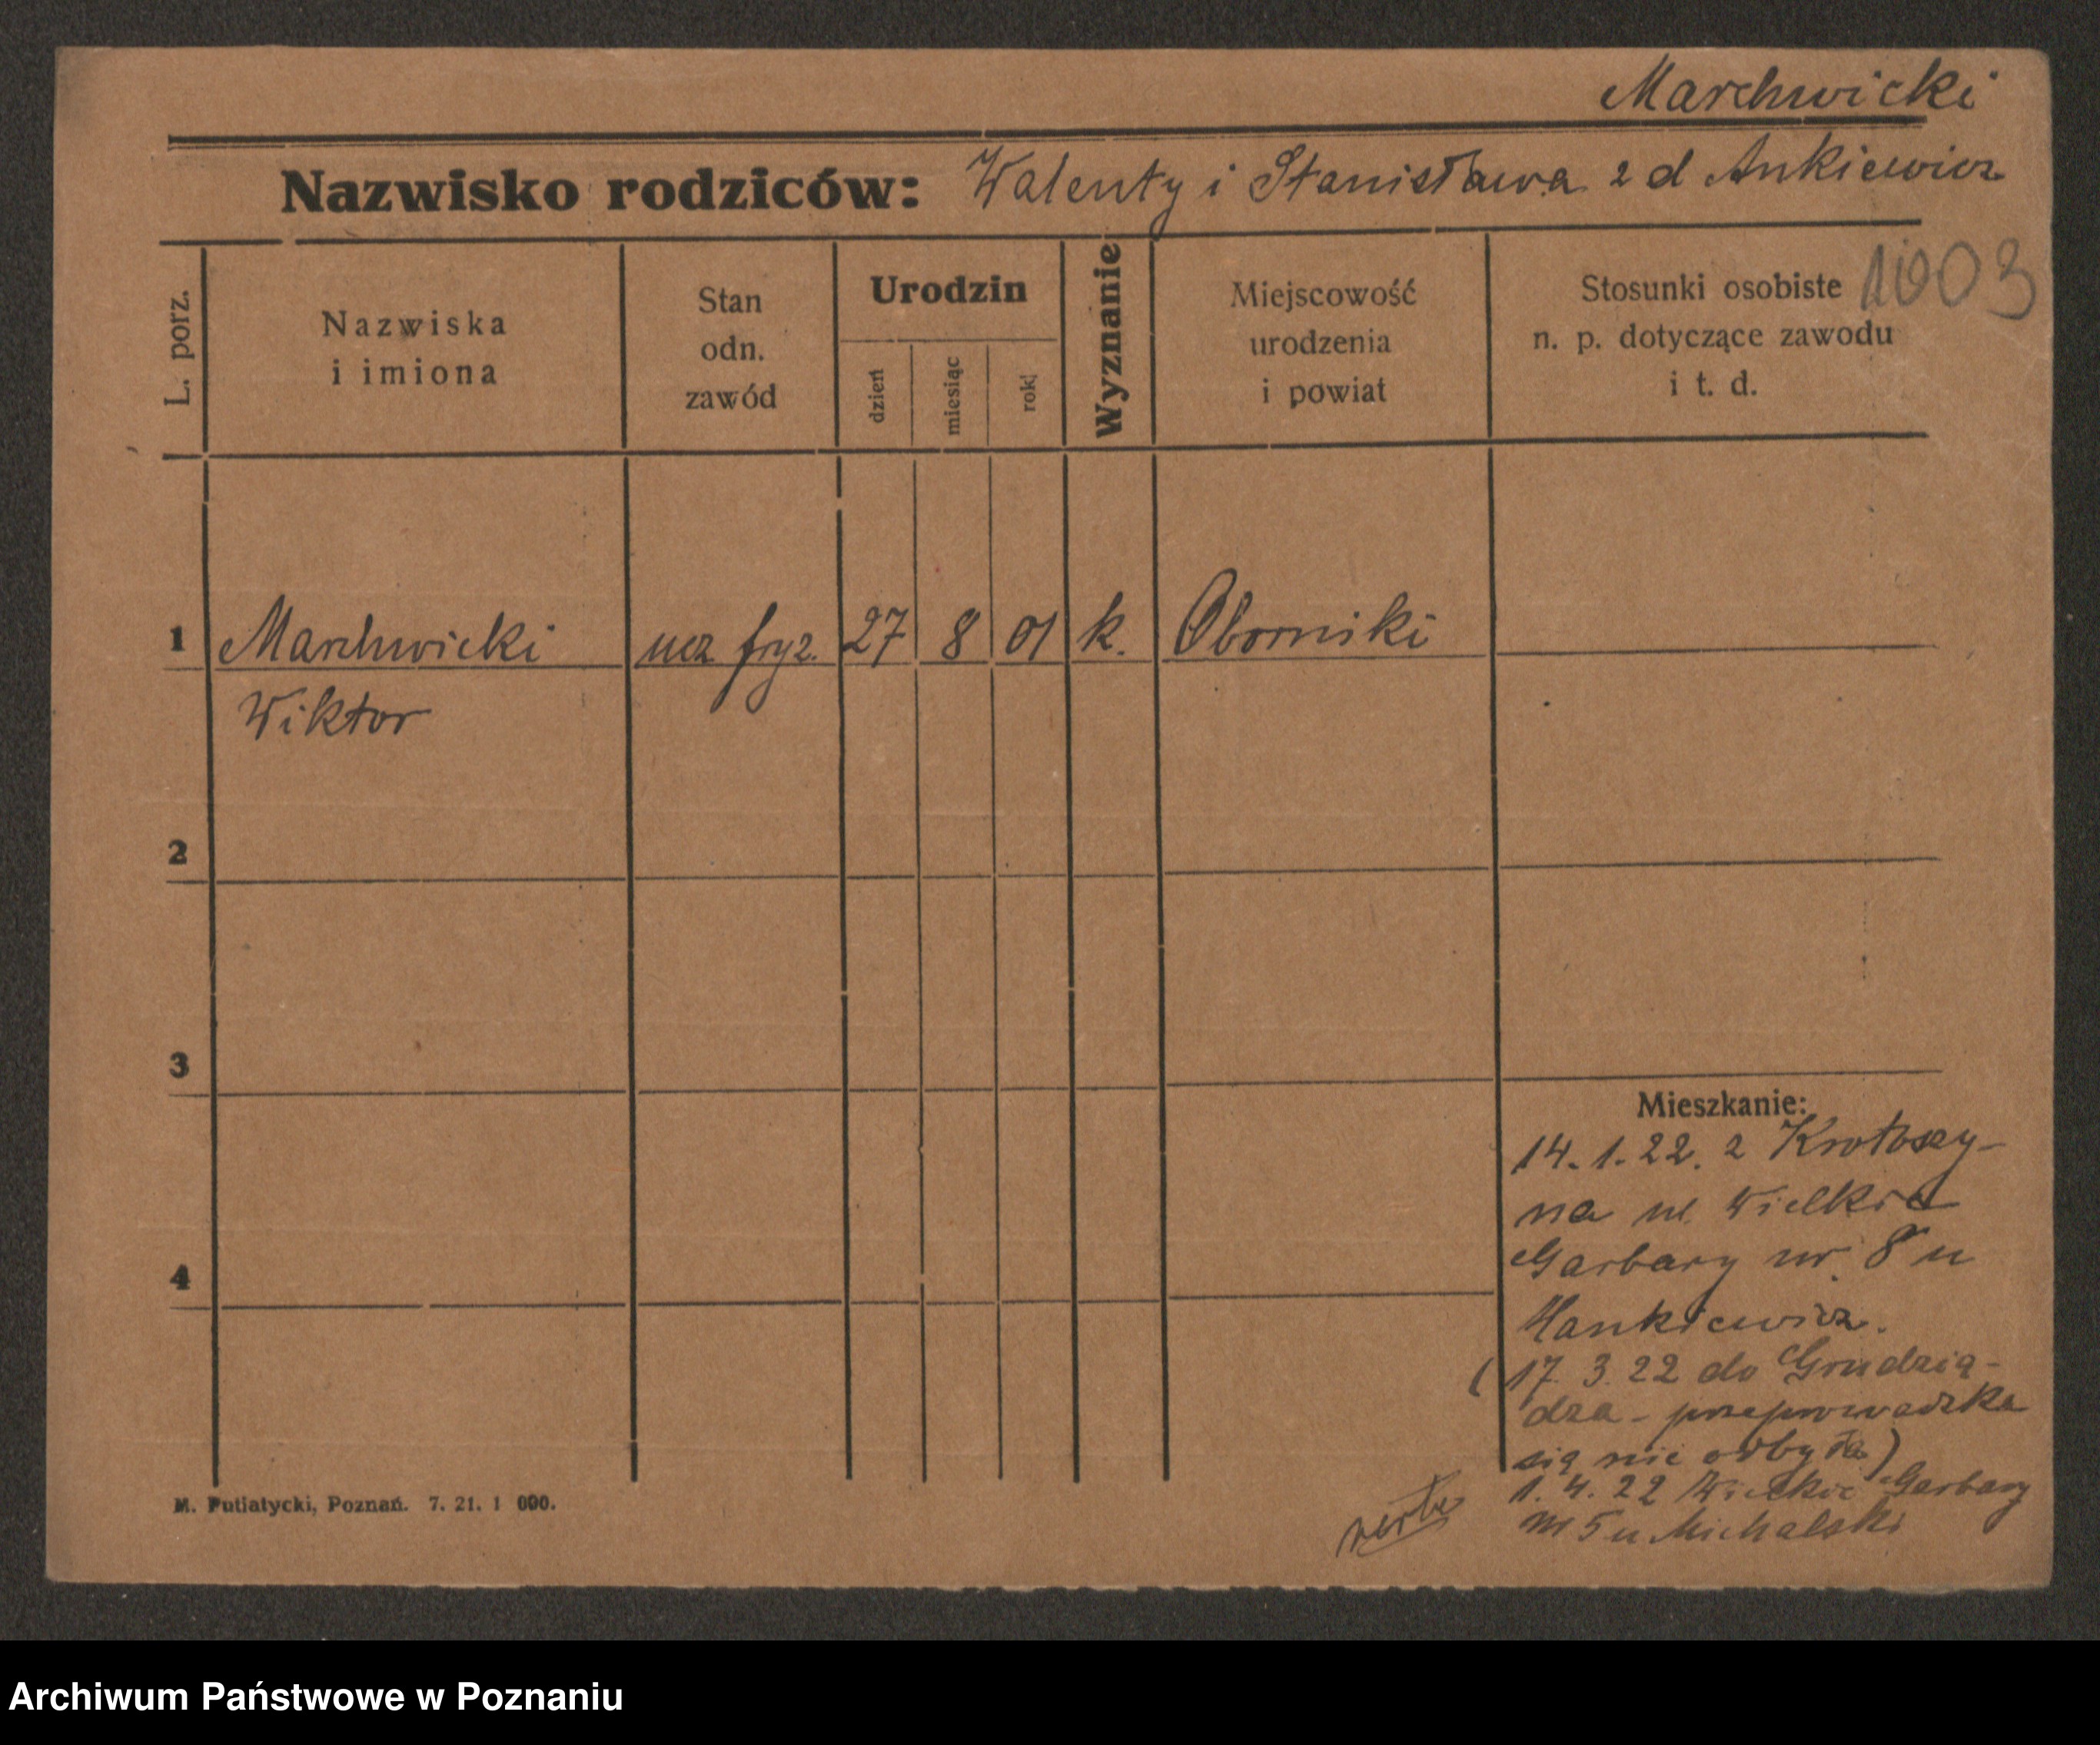 Marchwicki
Nazwisko rodziców: Walenty i Stanisława z d Ankiewicz
1003
L. porz.
Nazwiska
i imiona
Stan
odn.
zawód
Urodzin
dzień
miesiąc
rok
Wyznanie
Miejscowość
urodzenia
i powiat
Stosunki osobiste
n. p. dotyczące zawodu
i t. d.
1 Marchwicki ucz fryz. 27 8 01 k. Oborniki
Wiktor
2
3
4
Mieszkanie:
14. 1. 22. z Krotoszy-
na ul. Wielkie
Garbary nr. 8 u
Hankiewicz.
(17. 3. 22 do Grudzią-
dza - przeprowadzka
się nie odbyła)
1. 4. 22 Wielkie Garbary
nr 5 u Michalski
verte
M. Putiatycki, Poznań. 7. 21. 1 000.
Archiwum Państwowe w Poznaniu